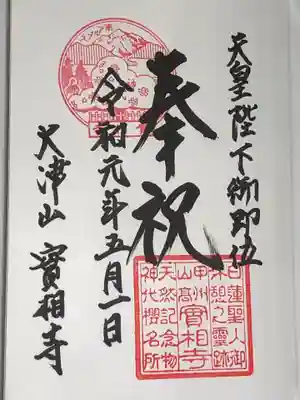 天皇陛下御即位
奉祝
令和元年五月一日
大津山 實相寺
日蓮聖人御
休憩之靈跡
甲州
山高
實相寺
天然記念物
神代櫻名所